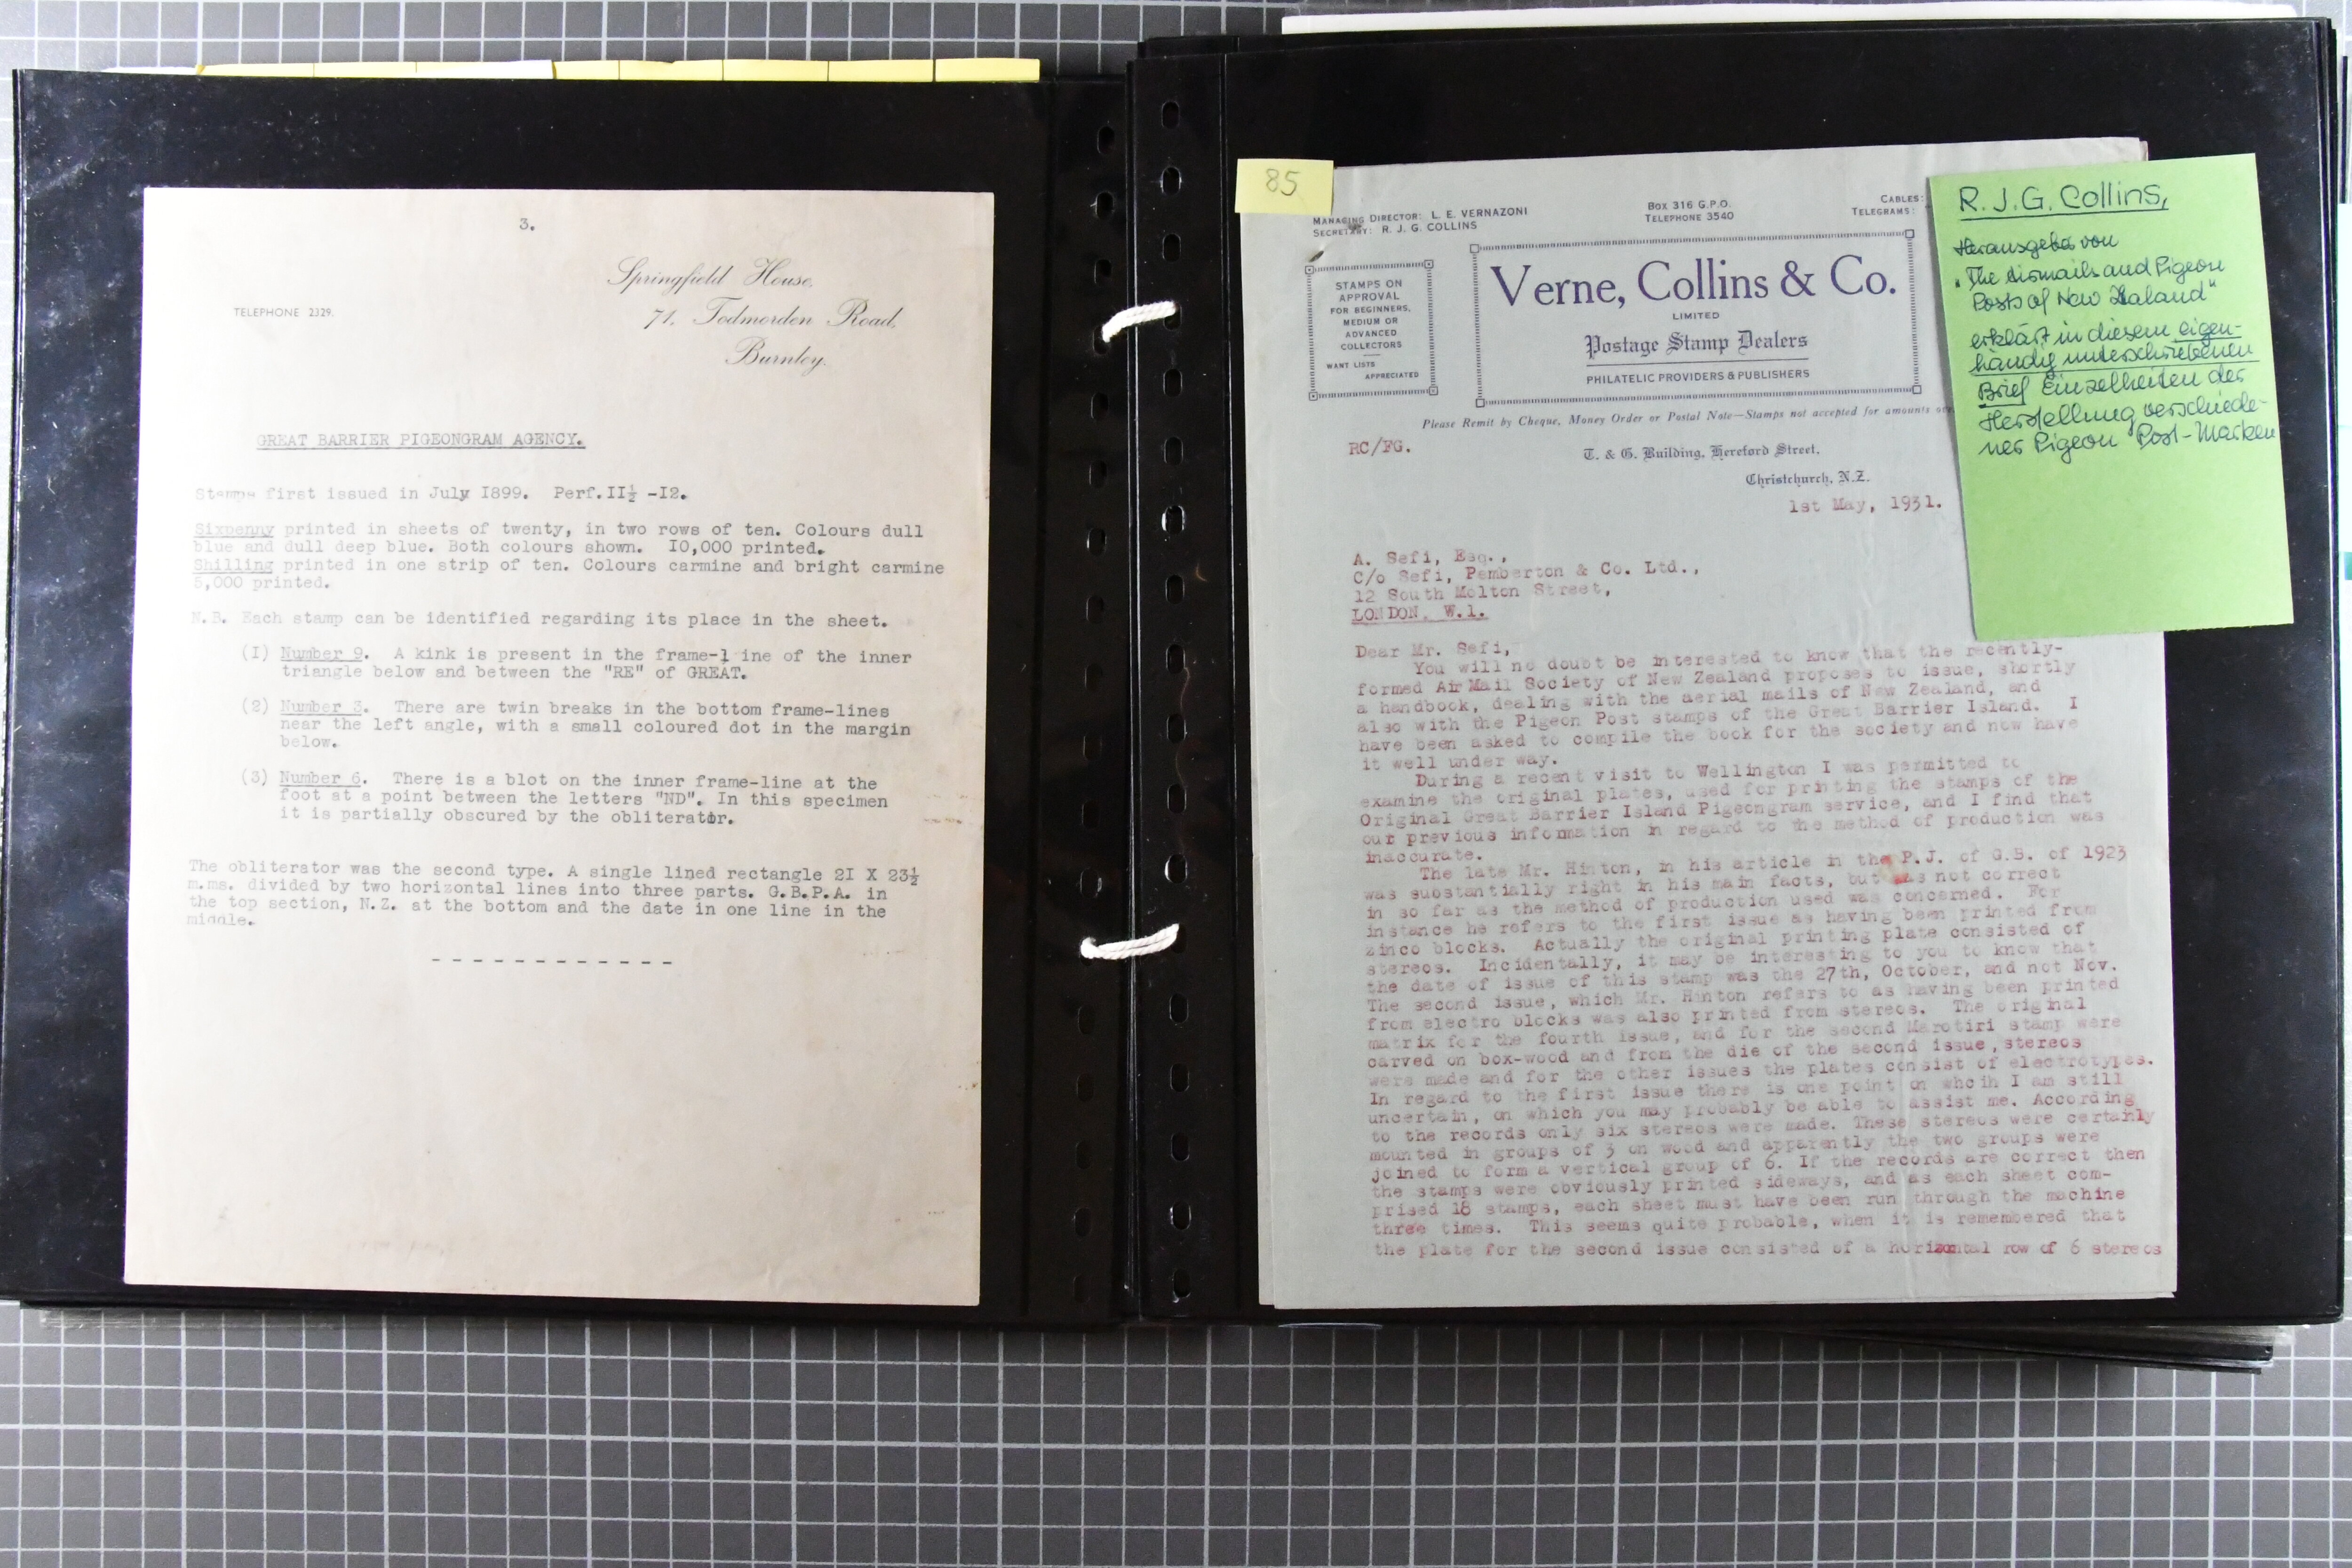 3.
Springfield House.
TELEPHONE 2329.
71, Todmorden Road,
Burnley.
GREAT BARRIER PIGEONGRAM AGENCY.
Stamps first issued in July I899. Perf.II½ -I2.
Sixpenny printed in sheets of twenty, in two rows of ten. Colours dull
blue and dull deep blue. Both colours shown. I0,000 printed.
Shilling printed in one strip of ten. Colours carmine and bright carmine
5,000 printed.
N.B. Each stamp can be identified regarding its place in the sheet.
(I) Number 9. A kink is present in the frame-l ine of the inner
triangle below and between the "RE" of GREAT.
(2) Number 3. There are twin breaks in the bottom frame-lines
near the left angle, with a small coloured dot in the margin
below.
(3) Number 6. There is a blot on the inner frame-line at the
foot at a point between the letters "ND". In this specimen
it is partially obscured by the obliterator.
The obliterator was the second type. A single lined rectangle 2I X 23½
m.ms. divided by two horizontal lines into three parts. G.B.P.A. in
the top section, N.Z. at the bottom and the date in one line in the
middle.
- - - - - - - - - - - -
85
MANAGING DIRECTOR: L. E. VERNAZONI
SECRETARY: R. J. G. COLLINS
BOX 316 G.P.O.
TELEPHONE 3540
CABLES:
TELEGRAMS:
STAMPS ON
APPROVAL
FOR BEGINNERS,
MEDIUM OR
ADVANCED
COLLECTORS
WANT LISTS
APPRECIATED
Verne, Collins & Co.
LIMITED
Postage Stamp Dealers
PHILATELIC PROVIDERS & PUBLISHERS
Please Remit by Cheque, Money Order or Postal Note—Stamps not accepted for amounts
RC/FG.
T. & G. Building, Hereford Street,
Christchurch, N.Z.
1st May, 1931.
A. Sefi, Esq.,
C/o Sefi, Pemberton & Co. Ltd.,
12 South Molton Street,
LONDON. W.1.
Dear Mr. Sefi,
You will no doubt be interested to know that the recently-
formed Air Mail Society of New Zealand proposes to issue, shortly
a handbook, dealing with the aerial mails of New Zealand, and
also with the Pigeon Post stamps of the Great Barrier Island. I
have been asked to compile the book for the society and now have
it well under way.
During a recent visit to Wellington I was permitted to
examine the original plates, used for printing the stamps of the
Original Great Barrier Island Pigeongram service, and I find that
our previous information in regard to the method of production was
inaccurate.
The late Mr. Hinton, in his article in the P.J. of G.B. of 1923
was substantially right in his main facts, but was not correct
in so far as the method of production used was concerned. For
instance he refers to the first issue as having been printed from
zinco blocks. Actually the original printing plate consisted of
stereos. Incidentally, it may be interesting to you to know that
the date of issue of this stamp was the 27th, October, and not Nov.
The second issue, which Mr. Hinton refers to as having been printed
from electro blocks was also printed from stereos. The original
matrix for the fourth issue, and for the second Marotiri stamp were
carved on box-wood and from the die of the second issue, stereos
were made and for the other issues the plates consist of electrotypes.
In regard to the first issue there is one point on whcih I am still
uncertain, on which you may probably be able to assist me. According
to the records only six stereos were made. These stereos were certainly
mounted in groups of 3 on wood and apparently the two groups were
joined to form a vertical group of 6. If the records are correct then
the stamps were obviously printed sideways, and as each sheet com-
prised 18 stamps, each sheet must have been run through the machine
three times. This seems quite probable, when it is remembered that
the plate for the second issue consisted of a horizontal row of 6 stereos
R. J. G. Collins,
Herausgeber von
"The Airmails and Pigeon
Posts of New Zealand"
erklärt in diesem eigen-
händig unterschriebenen
Brief Einzelheiten der
Herstellung verschiede-
ner Pigeon Post-Marken